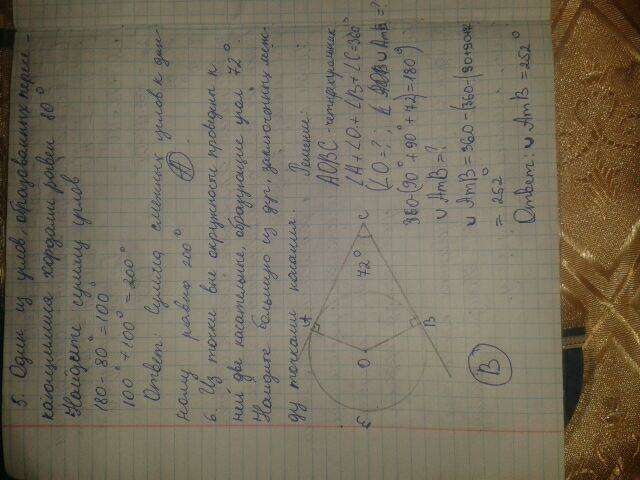 5. Один из углов, образованных пересе-
кающимися хордами равен 80°
Найдите сумму углов
180-80°=100°
100°+100°=200°
Ответ: Сумма смежных углов к дан-
ному равно 200°
6. Из точки вне окружности проведены к
ней две касательные, образующие угол 72°.
Найдите большую из дуг заключенных меж-
ду точками касания.
Решение:
AOBC - четырёхугольник
∠A+∠O+∠B+∠C=360°
∠O=?; ∪AmB=?
360-(90°+90°+72)=180°)
∪AmB=?
∪AmB=360-(360-(90+90+72
=252°
Ответ: ∪AmB=252°
A
O
B
C
72°
E
B